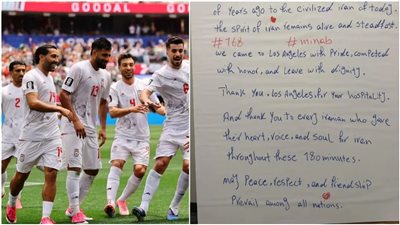 GOOOAL
13
4
of Years ago to the civilized iran of today.
the spirit of iran remains alive and steadfast.
#168 #minab
we came to Los Angeles with Pride, competed
with honor, and leave with dignity.
Thank You, Los Angeles, for Your hospitality.
And thank You to every iranian who gave
their heart, voice, and soul for iran
throughout these 180 minutes.
may Peace, respect, and friendship
Prevail among all nations.